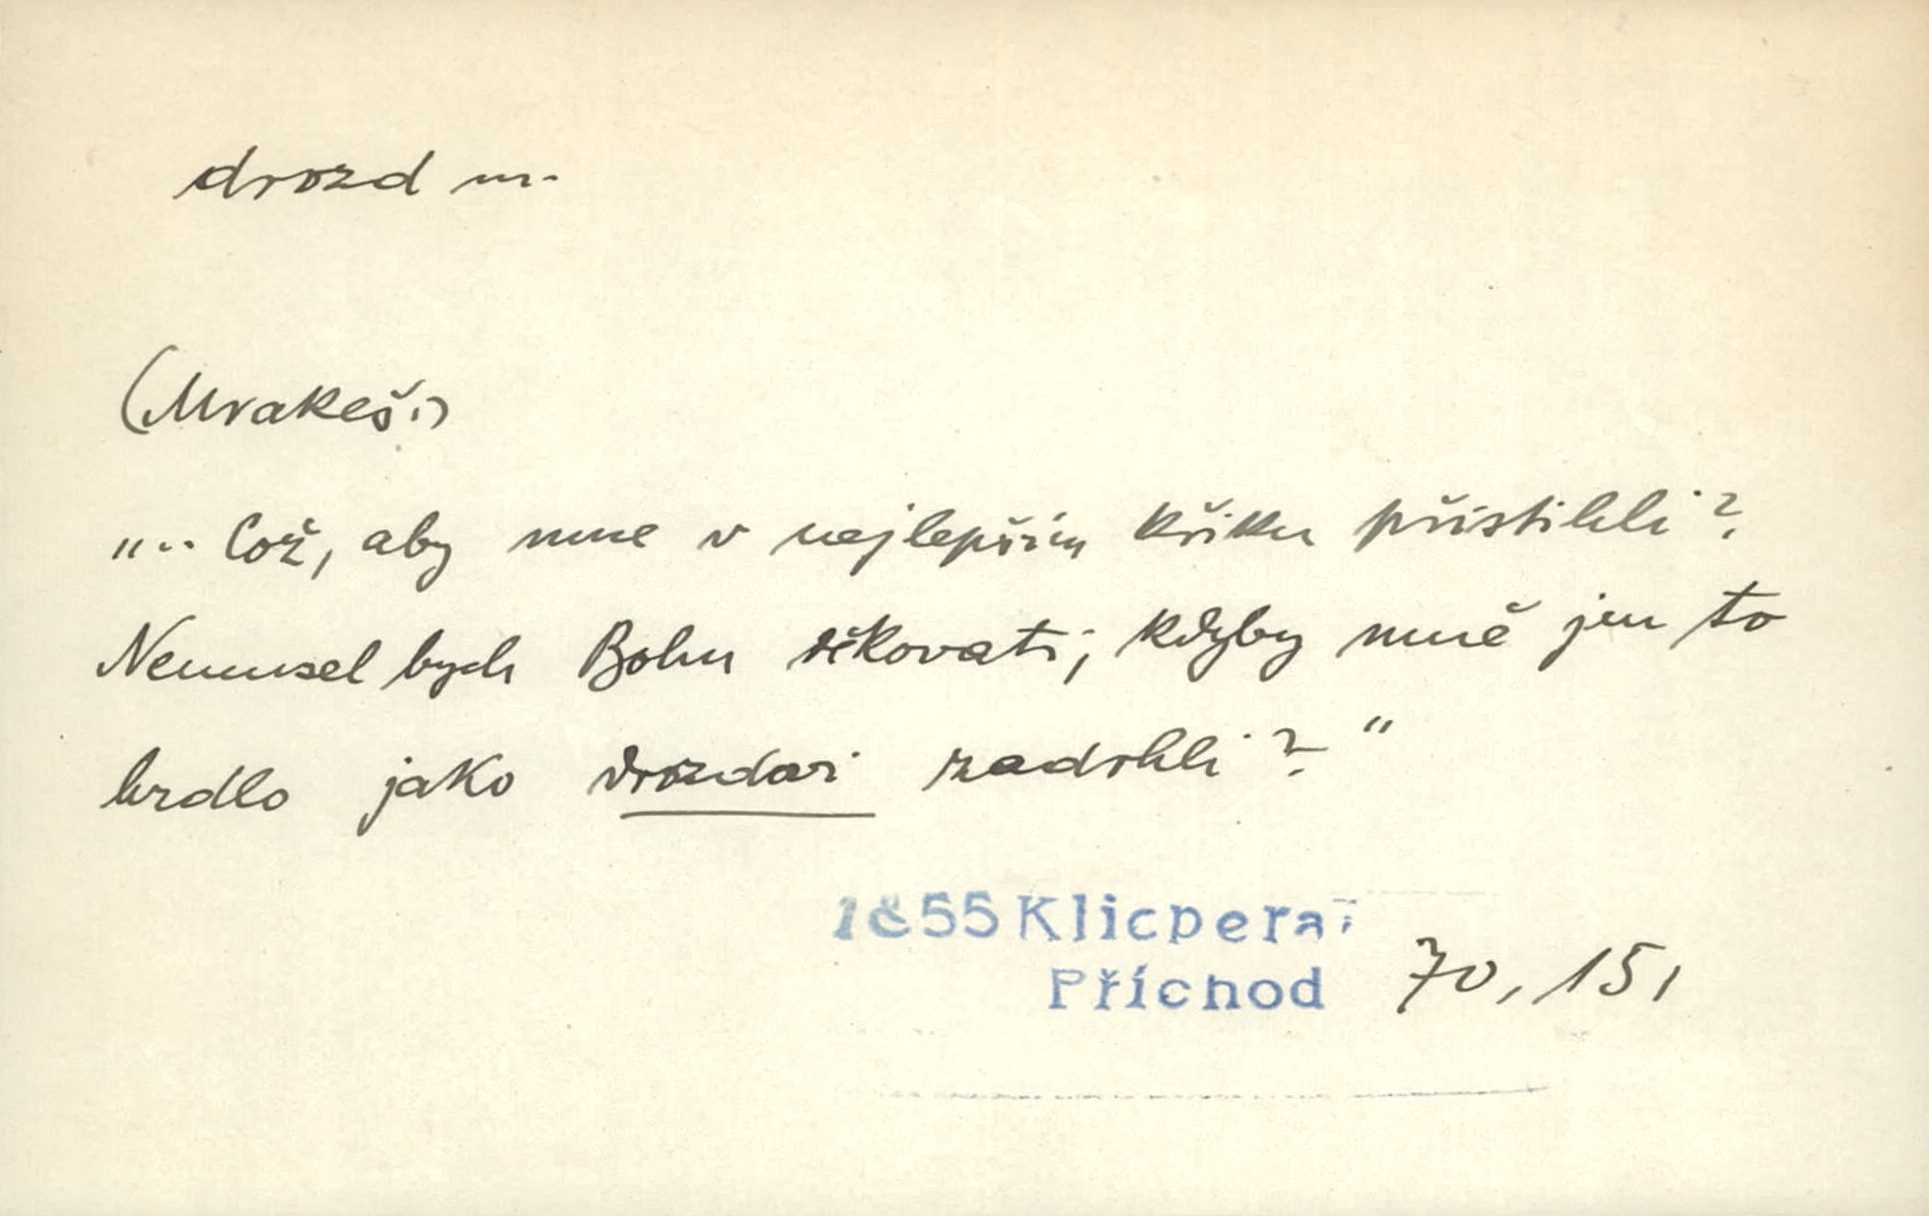 drozd m.
(Mrakeš:)
".. Což, aby mne v nejlepším křiku přistihli?
Nemusel bych Bohu děkovati, kdyby mně jen to
hrdlo jako drozdovi zadrhli?"
1855 Klicpera:
Příchod 70, 15,